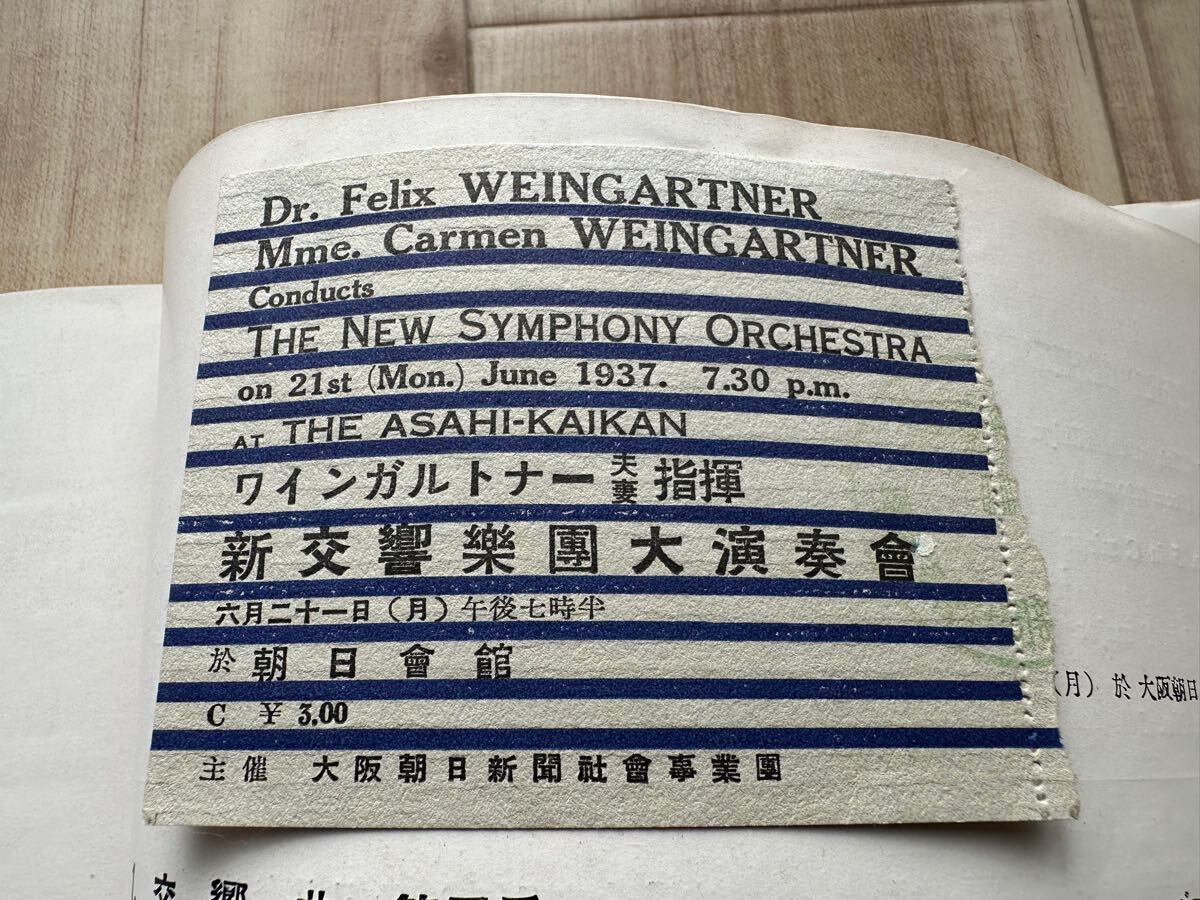 Dr. Felix WEINGARTNER
Mme. Carmen WEINGARTNER
Conducts
THE NEW SYMPHONY ORCHESTRA
on 21st (Mon.) June 1937. 7.30 p.m.
AT THE ASAHI-KAIKAN
ワインガルトナー夫妻指揮
新交響樂團大演奏會
六月二十一日(月)午後七時半
於 朝日會館
C ¥ 3.00
主催 大阪朝日新聞社會事業團
(月) 於大阪朝日
交響